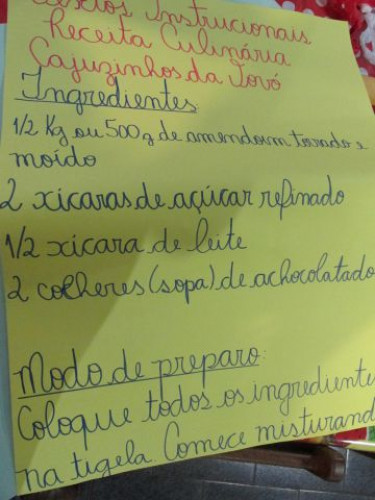 Textos Instrucionais
Receita Culinária
Cajuzinhos da Vovó
Ingredientes:
1/2 Kg ou 500g de amendoim torrado e
moído
2 xicaras de açúcar refinado
1/2 xicara de leite
2 colheres (sopa) de achocolatado
Modo de preparo:
Coloque todos os ingrediente
na tigela. Comece misturand